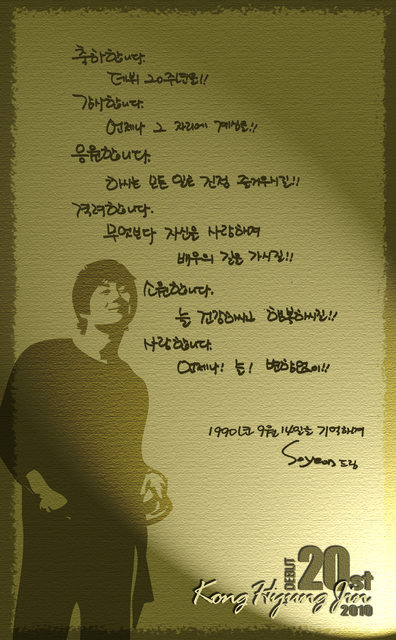 축하합니다.
데뷔 20주년을!!
감사합니다.
언제나 그 자리에 계심을!!
응원합니다.
하시는 모든 일을 진정 즐거우시길!!
격려합니다.
무엇보다 자신을 사랑하며
배우의 길을 가시길!!
소원합니다.
늘 건강하시고 행복하시길!!
사랑합니다.
언제나! 늘! 변함없이!!
1990년 9월 14일을 기억하며
Soyeon 드림
DEBUT 20st
Kong Hyung Jin
2010